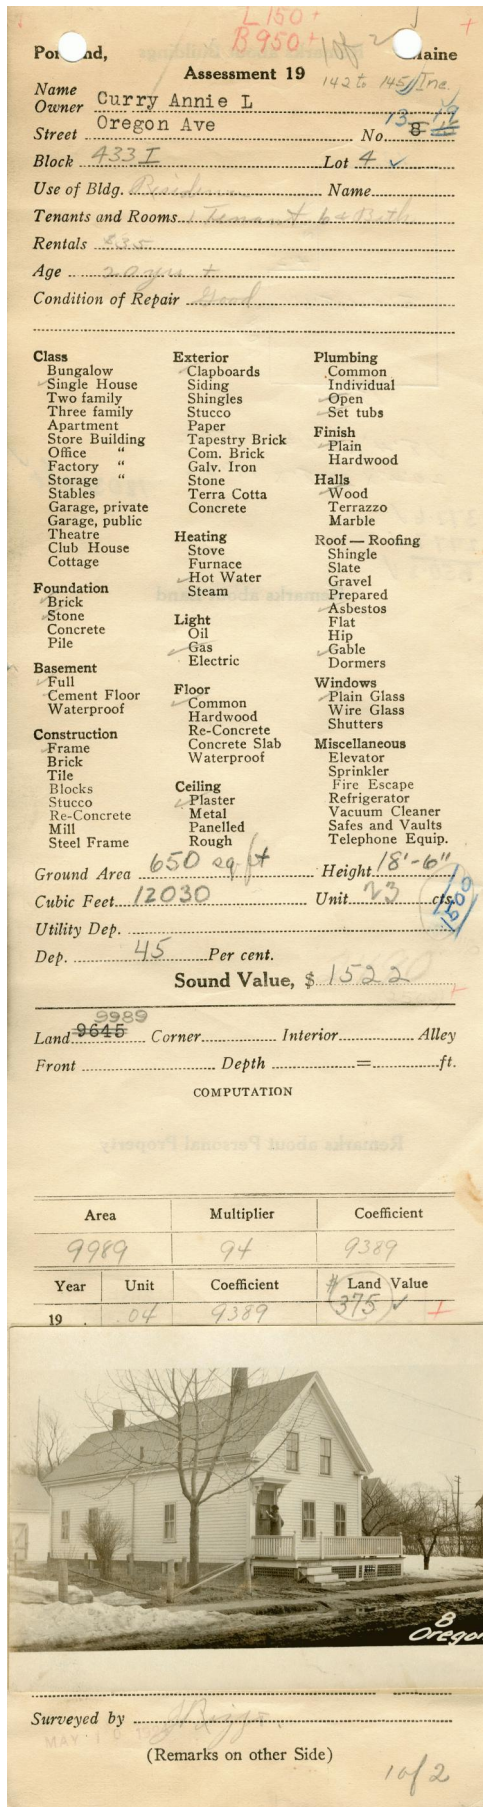 L 150 +
B 950 +
1 of 2
Portland, Maine
Assessment 19
142 to 145 Inc.
Name
Owner Curry Annie L
Street Oregon Ave No. 8 13
Block 433 I Lot 4 ✓
Use of Bldg. Residence Name
Tenants and Rooms 1 Tenant 6 & Bath
Rentals $35
Age 20 yrs +
Condition of Repair Good
Class
Bungalow
Single House
Two family
Three family
Apartment
Store Building
Office "
Factory "
Storage "
Stables
Garage, private
Garage, public
Theatre
Club House
Cottage
Foundation
Brick
Stone
Concrete
Pile
Basement
Full
Cement Floor
Waterproof
Construction
Frame
Brick
Tile
Blocks
Stucco
Re-Concrete
Mill
Steel Frame
Exterior
Clapboards
Siding
Shingles
Stucco
Paper
Tapestry Brick
Com. Brick
Galv. Iron
Stone
Terra Cotta
Concrete
Heating
Stove
Furnace
Hot Water
Steam
Light
Oil
Gas
Electric
Floor
Common
Hardwood
Re-Concrete
Concrete Slab
Waterproof
Ceiling
Plaster
Metal
Panelled
Rough
Plumbing
Common
Individual
Open
Set tubs
Finish
Plain
Hardwood
Halls
Wood
Terrazzo
Marble
Roof — Roofing
Shingle
Slate
Gravel
Prepared
Asbestos
Flat
Hip
Gable
Dormers
Windows
Plain Glass
Wire Glass
Shutters
Miscellaneous
Elevator
Sprinkler
Fire Escape
Refrigerator
Vacuum Cleaner
Safes and Vaults
Telephone Equip.
Ground Area 650 sq ft Height 18'-6"
Cubic Feet 12030 Unit 23 cts.
Utility Dep.
Dep. 45 Per cent.
Sound Value, $ 1522
9989
Land 9645 Corner Interior Alley
Front Depth = ft.
COMPUTATION
Area Multiplier Coefficient
9989 94 9389
Year Unit Coefficient # Land Value
19 .04 9389 375 ✓
8
Oregon
Surveyed by
MAY
(Remarks on other Side)
1 of 2